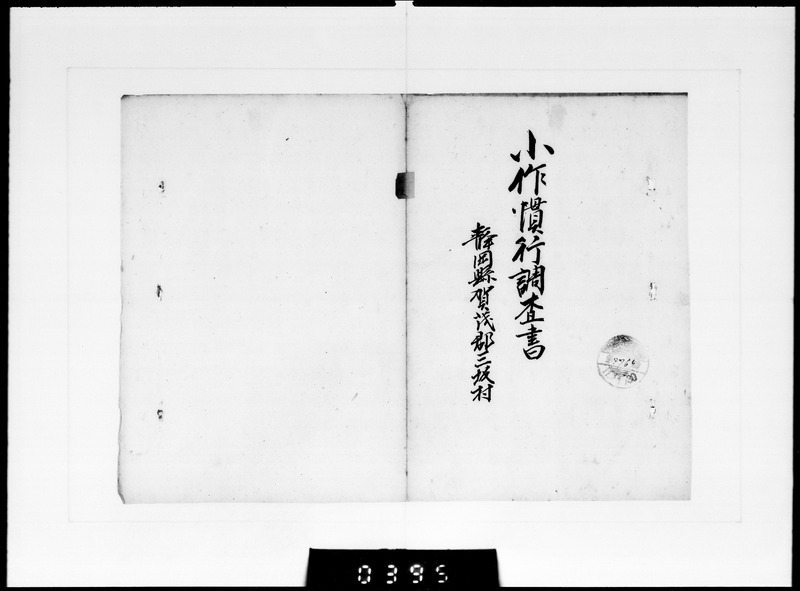 小作慣行調査書
靜岡縣賀茂郡三坂村
0395